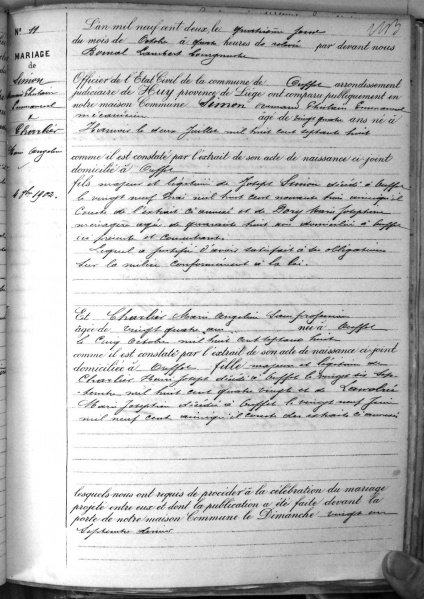 N° 11
MARIAGE
de
Simon
Emmanuel
&
Charlier
Marie Angeline
4 8bre 1902.
L'an mil neuf cent deux, le quatrième jour
du mois de Octobre à quatre heures de relevée par devant nous
Lambert
Officier de l'État Civil de la commune de Ouffet arrondissement
judiciaire de Huy province de Liège ont comparu publiquement en
notre maison Commune Simon Armand Ghislain Emmanuel
mécanicien âgé de vingt quatre ans né à
Hamoir le deux Juillet mil huit cent septante huit
comme il est constaté par l'extrait de son acte de naissance ci-joint
domicilié à Ouffet
fils majeur et légitime de Joseph Simon décédé à Ouffet
le vingt neuf Mai mil huit cent nonante huit ainsi qu'il
Conste de l'extrait ci annexé et de Rory Marie Josephine
ménagère âgée de quarante huit ans domiciliée à Ouffet
ici présente et Consentante
Lequel a justifié d'avoir satisfait à ses obligations
sur la milice conformément à la loi.
Et Charlier Marie Angeline Sans profession
âgée de vingt quatre ans née à Ouffet
le Cinq Octobre mil huit cent septante huit
comme il est constaté par l'extrait de son acte de naissance ci-joint
domiciliée à Ouffet fille majeure et légitime de
Charlier Joseph décédé à Ouffet le vingt six Sep-
tembre mil huit cent quatre vingts et de
Marie Josephine décédée à Ouffet le vingt neuf Juin
mil neuf cent ainsi qu'il conste des extraits ci annexés
lesquels nous ont requis de procéder à la célébration du mariage
projeté entre eux et dont la publication a été faite devant la
porte de notre maison Commune le Dimanche vingt un
Septembre dernier